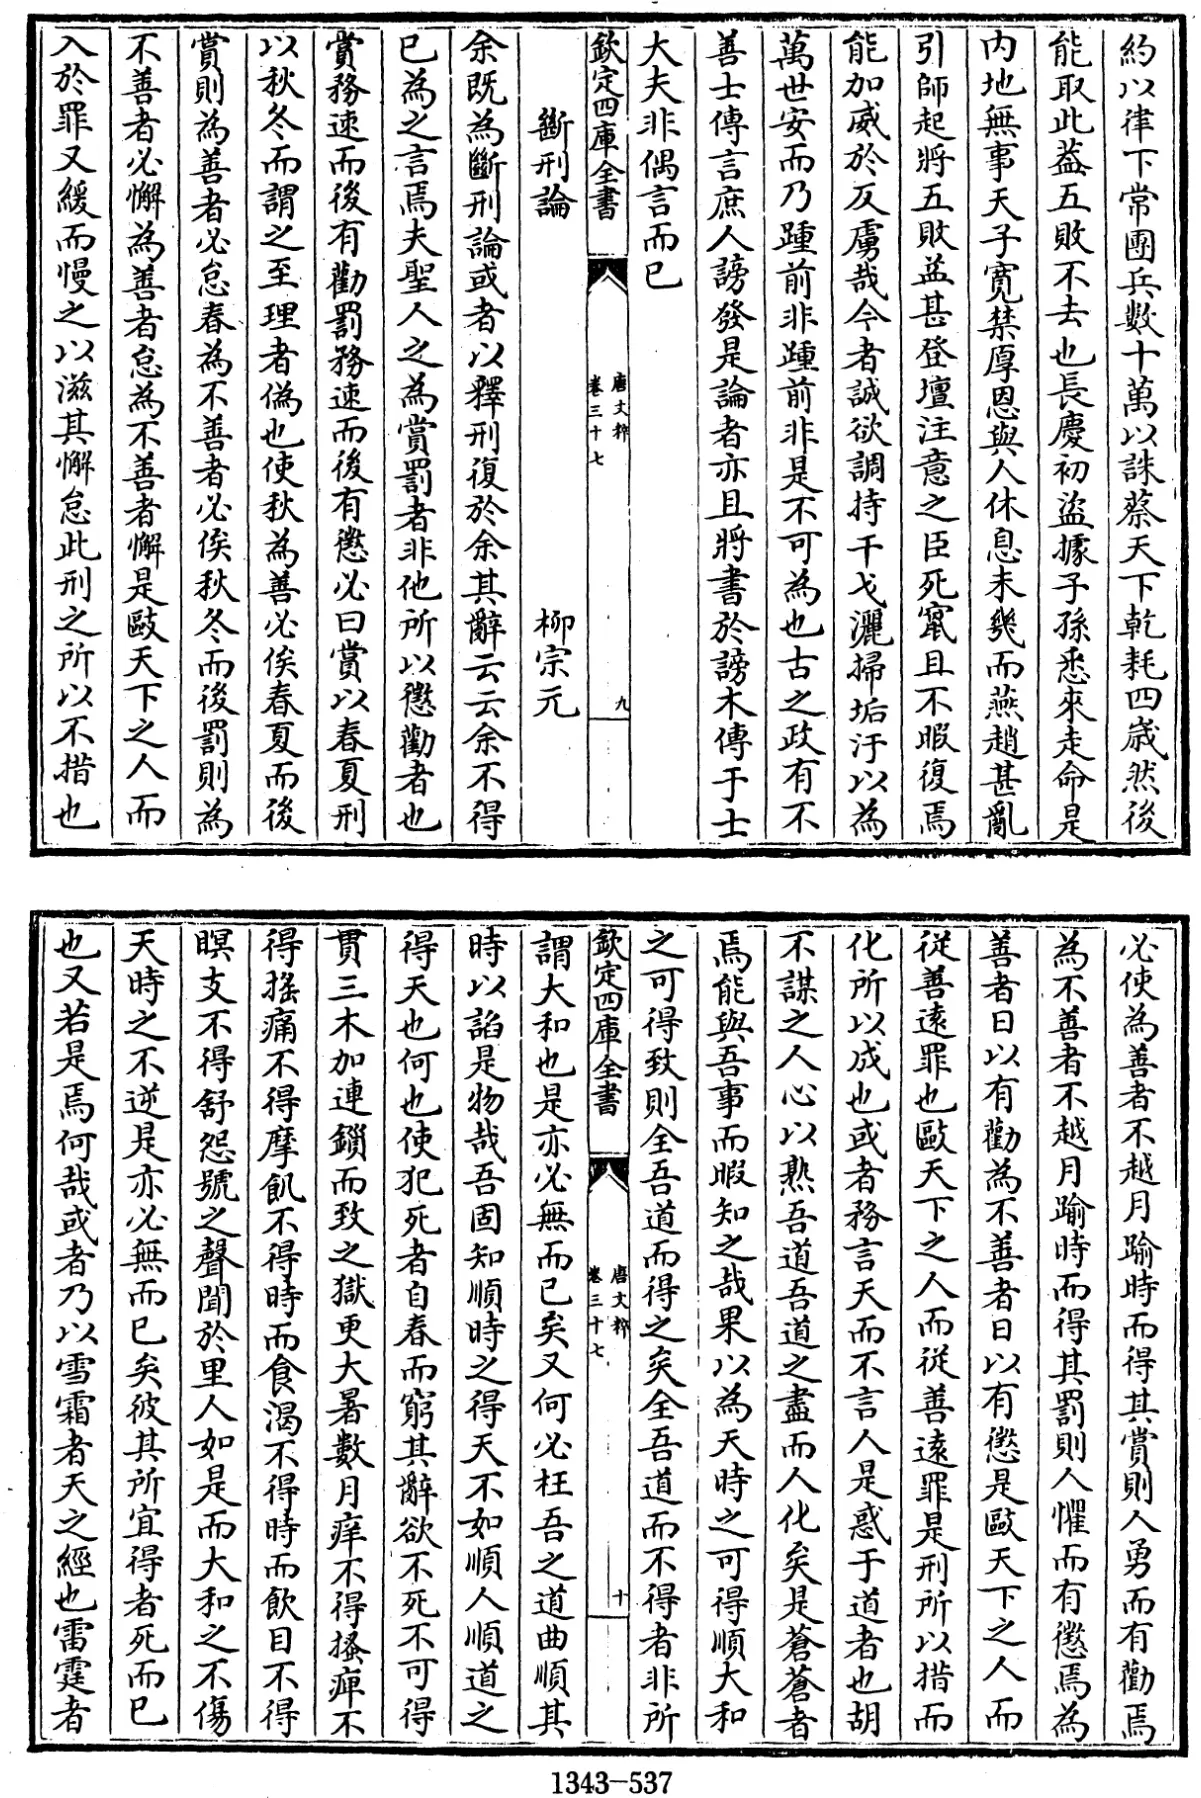 約以律下常團兵數十萬以誅蔡天下乾耗四歲然後
能取此葢五敗不去也長慶初盜據子孫悉來走命是
内地無事天子寛禁厚恩與人休息未幾而燕趙甚亂
引師起將五敗益甚登壇注意之臣死竄且不暇復焉
能加威於反虜哉今者誠欲調持干戈灑掃垢汙以為
萬世安而乃踵前非踵前非是不可為也古之政有不
善士傳言庶人謗發是論者亦且將書於謗木傳于士
大夫非偶言而已
欽定四庫全書
唐文粹
卷三十七
九
斷刑論 柳宗元
余既為斷刑論或者以釋刑復於余其辭云云余不得
已為之言焉夫聖人之為賞罰者非他所以懲勸者也
賞務速而後有勸罰務速而後有懲必曰賞以春夏刑
以秋冬而謂之至理者偽也使秋為善必俟春夏而後
賞則為善者必怠春為不善者必俟秋冬而後罰則為
不善者必懈為善者怠為不善者懈是敺天下之人而
入於罪又緩而慢之以滋其懈怠此刑之所以不措也
必使為善者不越月踰時而得其賞則人勇而有勸焉
為不善者不越月踰時而得其罰則人懼而有懲焉為
善者日以有勸為不善者日以有懲是敺天下之人而
從善逺罪也敺天下之人而從善逺罪是刑所以措而
化所以成也或者務言天而不言人是惑于道者也胡
不謀之人心以熟吾道吾道之盡而人化矣是蒼蒼者
焉能與吾事而暇知之哉果以為天時之可得順大和
之可得致則全吾道而得之矣全吾道而不得者非所
欽定四庫全書
唐文粹
卷三十七
十
謂大和也是亦必無而已矣又何必枉吾之道曲順其
時以諂是物哉吾固知順時之得天不如順人順道之
得天也何也使犯死者自春而窮其辭欲不死不可得
貫三木加連鎖而致之獄更大暑數月痒不得搔痺不
得搖痛不得摩飢不得時而食渴不得時而飲目不得
瞑支不得舒怨號之聲聞於里人如是而大和之不傷
天時之不逆是亦必無而已矣彼其所宜得者死而已
也又若是焉何哉或者乃以雪霜者天之經也雷霆者
1343-537